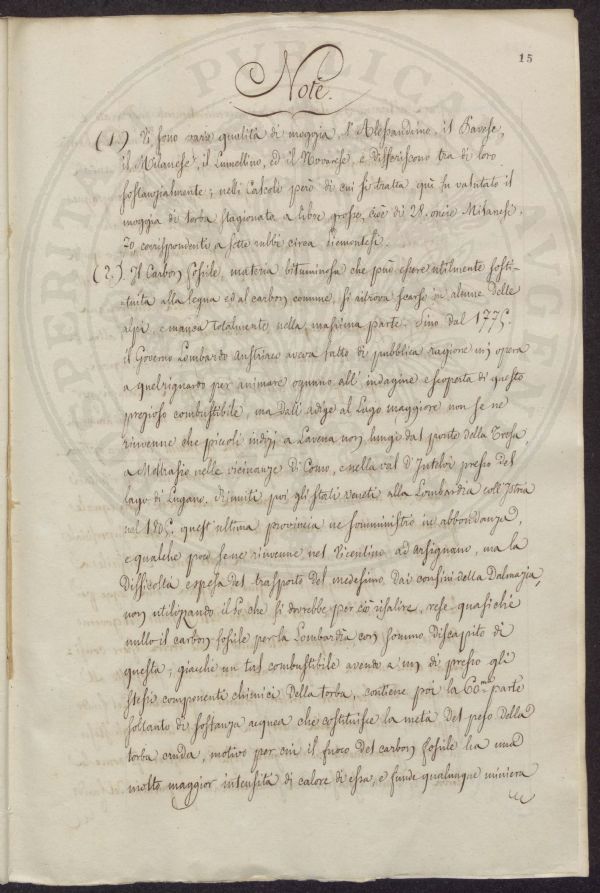 15
Note.
(1.) Vi sono varie qualità di moggia, l'Alessandrino, il Pavese,
il Milanese, il Lumellino, ed il Novarese, e differiscono tra di loro
sostanzialmente; nelli Calcoli però di cui si tratta qui fu valutato il
moggia di torba stagionata a libre grosse, cioè di 28. oncie Milanesi,
70, corrispondenti a sette rubbi circa piemontesi.
(2.) Il Carbon fossile, materia bituminosa che può essere utilmente sosti-
tuita alla legna ed al carbon comune, si ritrova scarso in alcune delle
alpi, e manca totalmente nella massima parte. Sino dal 1775.
il Governo Lombardo Austriaco aveva fatto di pubblica ragione un opera
a quel riguardo per animare ognuno all'indagine e scoperta di questo
prezioso combustibile, ma dall'adige al Lago maggiore non se ne
rinvenne che piccoli indizj a Lavena non lunge dal ponte della Tresa,
a Moltrasio nelle vicinanze di Como, e nella val d'Intelvi presso del
lago di Lugano. Riuniti poi gli stati veneti alla Lombardia coll'Istria
nel 1805. quest'ultima provincia ne somministrò in abbondanza,
e qualche poco se ne rinvenne nel Vicentino ad Arsignano, ma la
difficoltà e spesa del trasporto del medesimo dai confini della Dalmazia,
non utilizzando il Po che si dovrebbe per ciò risalire, rese quasiché
nullo il carbon fossile per la Lombardia con sommo discapito di
questa; giacchè un tal combustibile avente a un di presso gli
stessi componenti chimici della torba, contiene poi la 60.ma parte
soltanto di sostanza acquea che costituisce la metà del peso della
torba cruda, motivo per cui il fuoco del carbon fossile ha una
molto maggior intensità di calore di essa, e fonde qualunque miniera